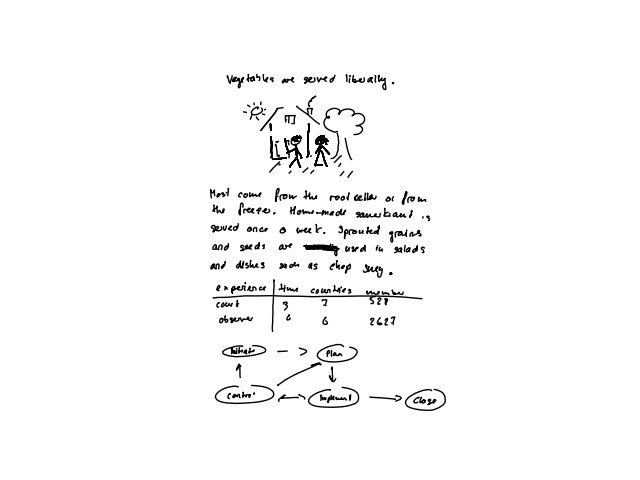 Vegetables are served liberally.
Most come from the root cellar or from
the freezer. Home-made sauerkraut is
served once a week. Sprouted grains
and seeds are used in salads
and dishes such as chop suey.
experience time countries member
court 3 7 529
observer 6 6 2627
Initiate Plan
Control Implement Close